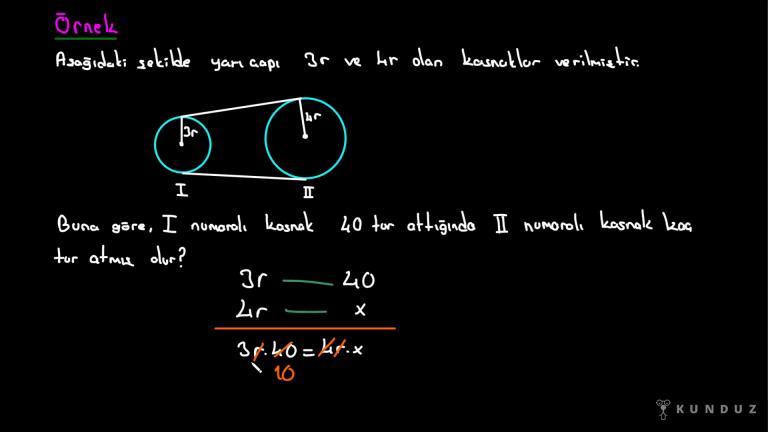 Örnek
Aşağıdaki şekilde yarıçapı 3r ve 4r olan kasnaklar verilmiştir.
3r
4r
I
II
Buna göre, I numaralı kasnak 40 tur attığında II numaralı kasnak kaç
tur atmış olur?
3r — 40
4r — x
3r.40=4r.x
10
KUNDUZ